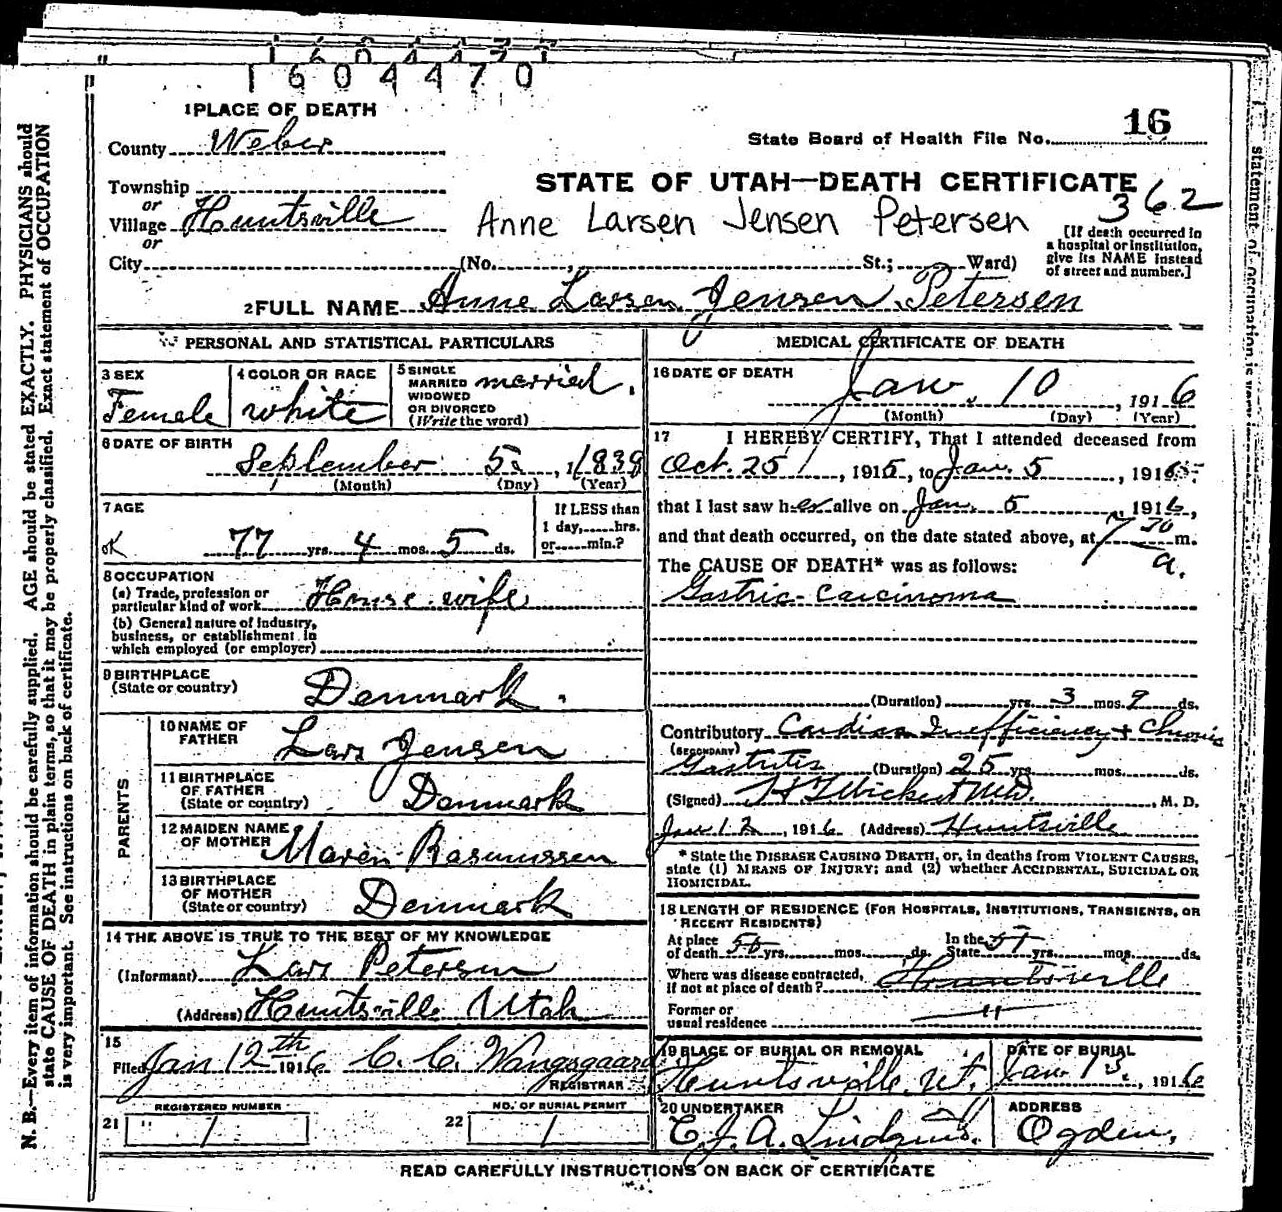 1604477
1604470
1 PLACE OF DEATH
County Weber
State Board of Health File No. 16
STATE OF UTAH—DEATH CERTIFICATE
362
Township
or
Village Huntsville
Anne Larsen Jensen Petersen
or
City (No. , St.; Ward)
[If death occurred in
a hospital or institution,
give its NAME instead
of street and number.]
2 FULL NAME Anne Larsen Jensen Petersen
PERSONAL AND STATISTICAL PARTICULARS
3 SEX
Female
4 COLOR OR RACE
white
5 SINGLE
MARRIED
WIDOWED
OR DIVORCED
(Write the word)
married.
6 DATE OF BIRTH
September 5, 1838
(Month) (Day) (Year)
7 AGE
OK
77 yrs. 4 mos. 5 ds.
If LESS than
1 day, hrs.
or min.?
8 OCCUPATION
(a) Trade, profession or
particular kind of work House wife
(b) General nature of industry,
business, or establishment in
which employed (or employer)
9 BIRTHPLACE
(State or country) Denmark.
PARENTS
10 NAME OF
FATHER Lars Jensen
11 BIRTHPLACE
OF FATHER
(State or country) Denmark
12 MAIDEN NAME
OF MOTHER Maren Rasmussen
13 BIRTHPLACE
OF MOTHER
(State or country) Denmark
14 THE ABOVE IS TRUE TO THE BEST OF MY KNOWLEDGE
(Informant) Lars Petersen
(Address) Huntsville Utah
15
Filed Jan 12th 1916 C. C. Wangsgaard
REGISTRAR
REGISTERED NUMBER
21 1
NO. OF BURIAL PERMIT
22 1
MEDICAL CERTIFICATE OF DEATH
16 DATE OF DEATH
Jan. 10, 1916
(Month) (Day) (Year)
17 I HEREBY CERTIFY, That I attended deceased from
Oct. 25, 1915, to Jan. 5, 1916
that I last saw her alive on Jan. 5, 1916,
and that death occurred, on the date stated above, at 7 30 a. m.
The CAUSE OF DEATH* was as follows:
Gastric Carcinoma
(Duration) yrs. 3 mos. 9 ds.
Contributory Cardiac Inefficiency + Chronic
(SECONDARY)
Gastritis (Duration) 25 yrs. mos. ds.
(Signed) M.D., M. D.
Jan 12, 1916 (Address) Huntsville
* State the DISEASE CAUSING DEATH, or, in deaths from VIOLENT CAUSES,
state (1) MEANS OF INJURY; and (2) whether ACCIDENTAL, SUICIDAL OR
HOMICIDAL.
18 LENGTH OF RESIDENCE (FOR HOSPITALS, INSTITUTIONS, TRANSIENTS, OR
RECENT RESIDENTS)
At place
of death yrs. mos. ds.
In the
State yrs. mos. ds.
Where was disease contracted,
if not at place of death? Huntsville
Former or
usual residence "
19 PLACE OF BURIAL OR REMOVAL
Huntsville Ut.
DATE OF BURIAL
Jan 13, 1916
20 UNDERTAKER
C. J. A. Lindquist.
ADDRESS
Ogden.
READ CAREFULLY INSTRUCTIONS ON BACK OF CERTIFICATE
N. B.—Every item of information should be carefully supplied. AGE should be stated EXACTLY. PHYSICIANS should
state CAUSE OF DEATH in plain terms, so that it may be properly classified. Exact statement of OCCUPATION
is very important. See instructions on back of certificate.
statement of OCCUPATION is